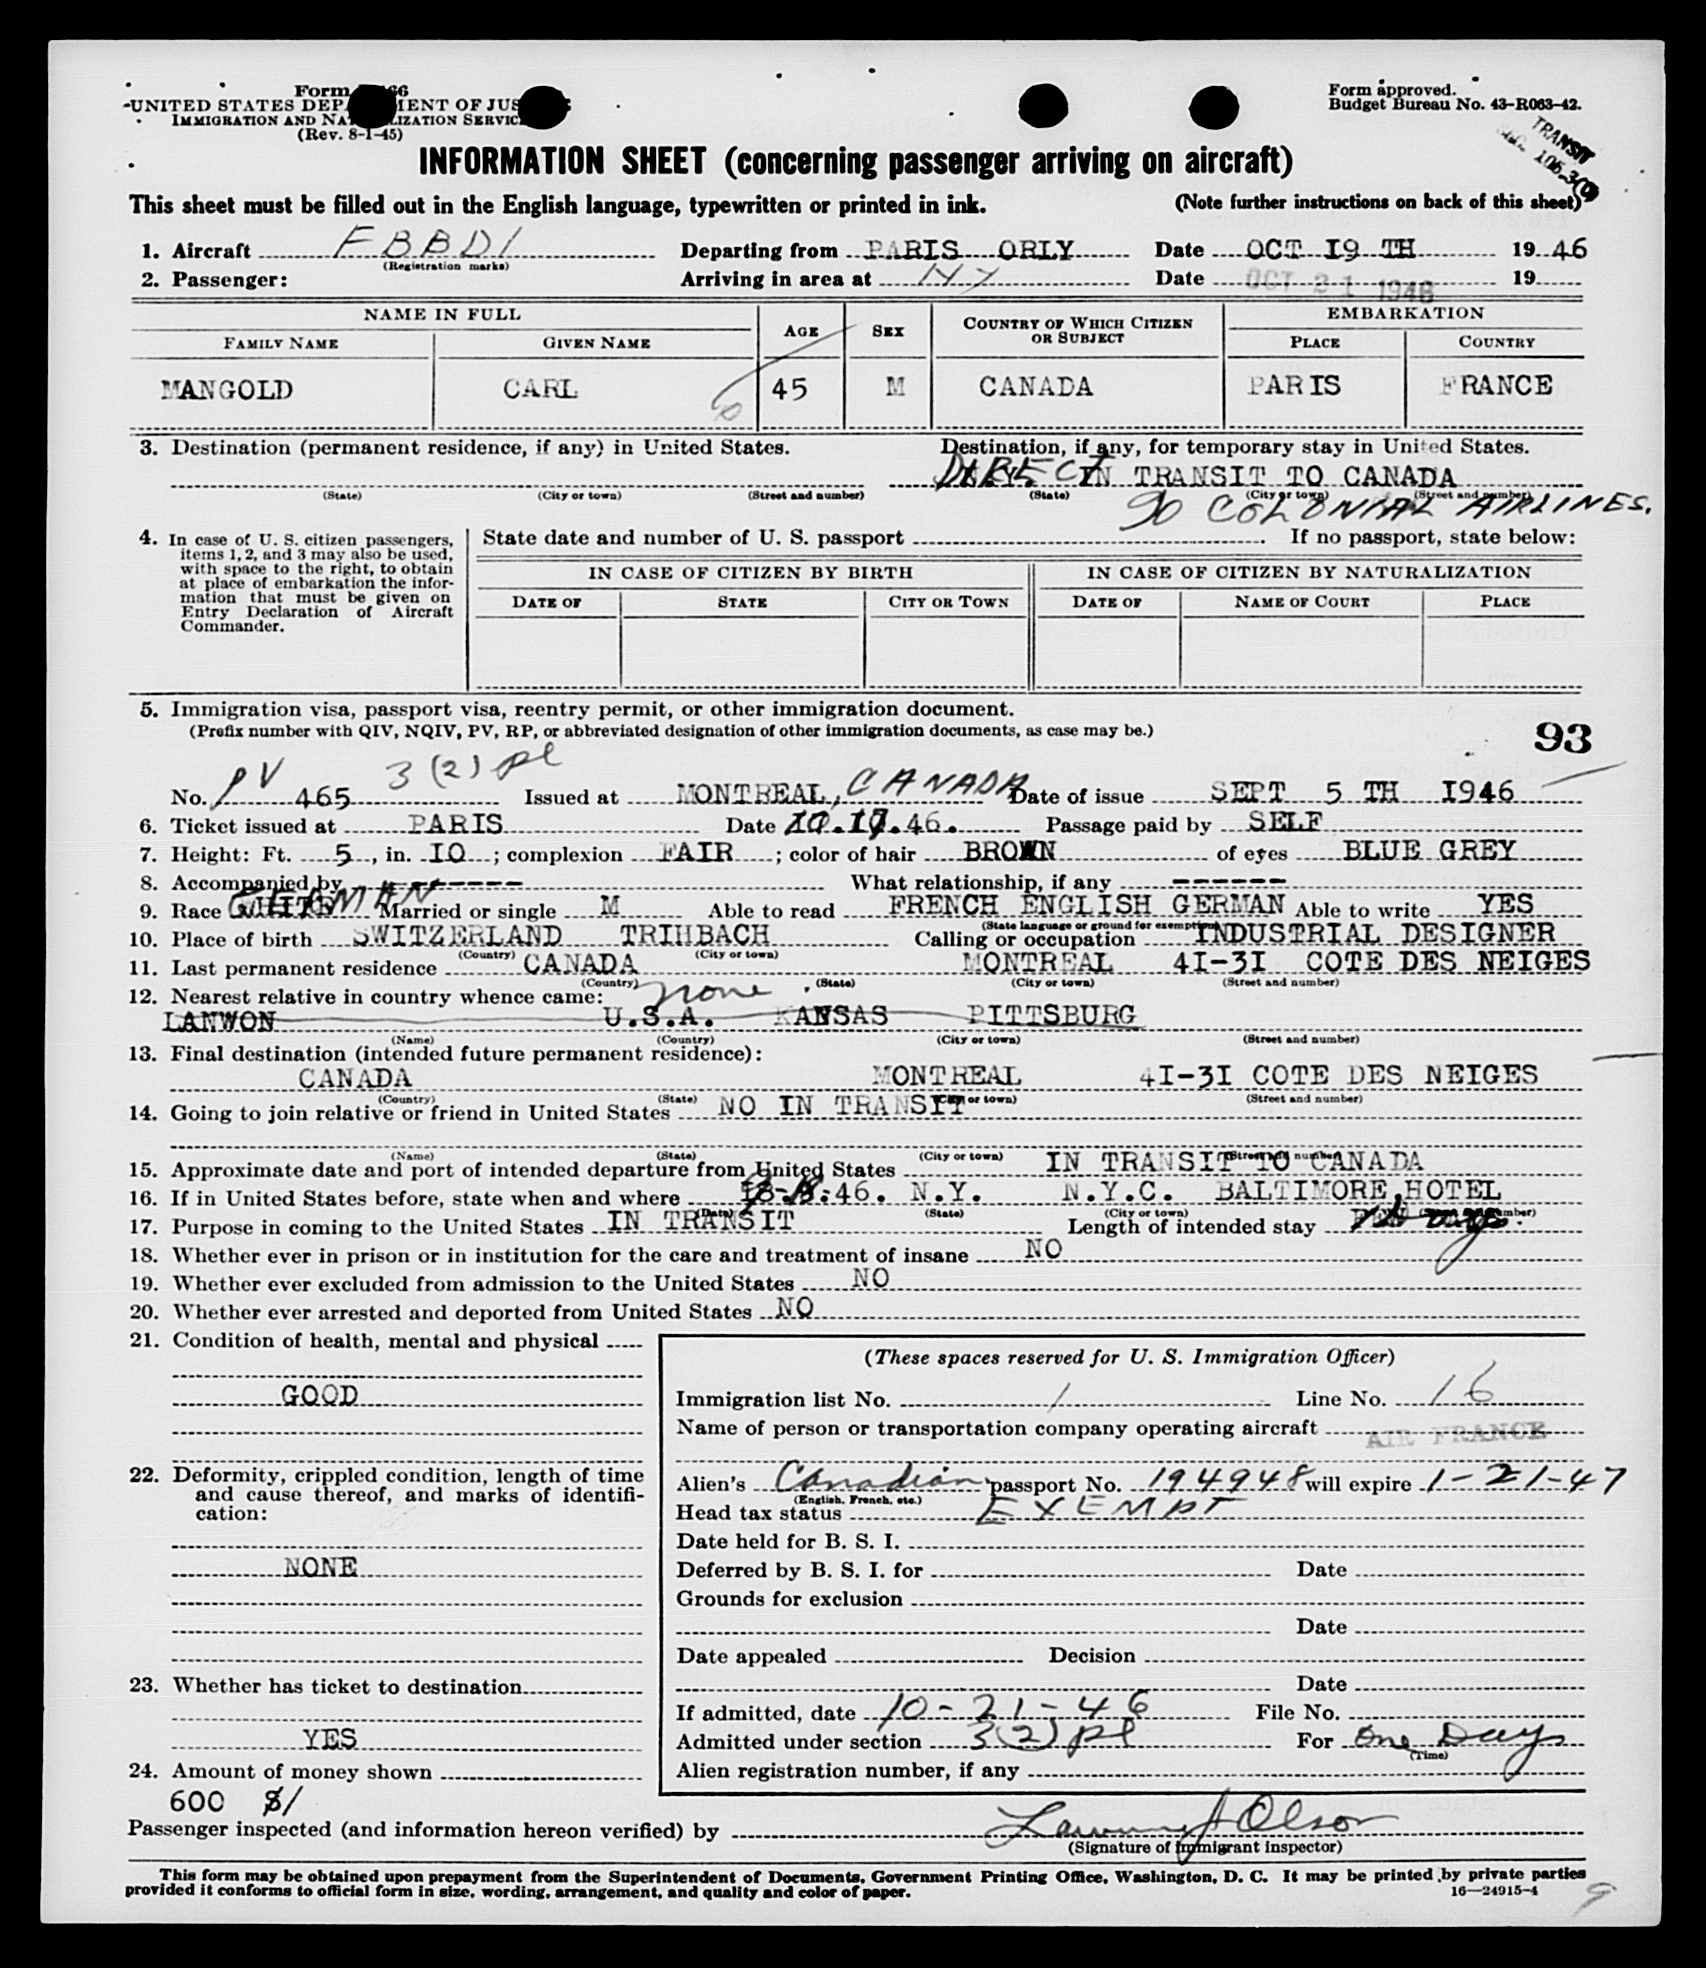 Form 66
UNITED STATES DEPARTMENT OF JUSTICE
IMMIGRATION AND NATURALIZATION SERVICE
(Rev. 8-1-45)
Form approved.
Budget Bureau No. 43-R063-42.
TRANSIT
INFORMATION SHEET (concerning passenger arriving on aircraft)
This sheet must be filled out in the English language, typewritten or printed in ink. (Note further instructions on back of this sheet)
1. Aircraft FBBDI Departing from PARIS ORLY Date OCT I9 TH 19 46
(Registration marks)
2. Passenger: Arriving in area at NY Date OCT 21 1946 19
NAME IN FULL AGE SEX COUNTRY OF WHICH CITIZEN OR SUBJECT EMBARKATION
FAMILY NAME GIVEN NAME PLACE COUNTRY
MANGOLD CARL 45 M CANADA PARIS FRANCE
3. Destination (permanent residence, if any) in United States. Destination, if any, for temporary stay in United States.
DIRECT IN TRANSIT TO CANADA
(State) (City or town) (Street and number) (State) (City or town) (Street and number)
COLONIAL AIRLINES.
4. In case of U. S. citizen passengers, items 1, 2, and 3 may also be used, with space to the right, to obtain at place of embarkation the information that must be given on Entry Declaration of Aircraft Commander.
State date and number of U. S. passport If no passport, state below:
IN CASE OF CITIZEN BY BIRTH IN CASE OF CITIZEN BY NATURALIZATION
DATE OF STATE CITY OR TOWN DATE OF NAME OF COURT PLACE
5. Immigration visa, passport visa, reentry permit, or other immigration document.
(Prefix number with QIV, NQIV, PV, RP, or abbreviated designation of other immigration documents, as case may be.)
93
3 (2) pl
No. PV 465 Issued at MONTREAL, CANADA Date of issue SEPT 5 TH I946
6. Ticket issued at PARIS Date 10.17.46. Passage paid by SELF
7. Height: Ft. 5, in. IO; complexion FAIR; color of hair BROWN of eyes BLUE GREY
8. Accompanied by -------- What relationship, if any ------
9. Race WHITE GERMAN Married or single M Able to read FRENCH ENGLISH GERMAN Able to write YES
(State language or ground for exemption)
10. Place of birth SWITZERLAND TRIHBACH Calling or occupation INDUSTRIAL DESIGNER
(Country) (City or town)
11. Last permanent residence CANADA MONTREAL 4I-3I COTE DES NEIGES
(Country) (State) (City or town) (Street and number)
12. Nearest relative in country whence came: none
LANWON U.S.A. KANSAS PITTSBURG
(Name) (Country) (City or town) (Street and number)
13. Final destination (intended future permanent residence):
CANADA MONTREAL 4I-3I COTE DES NEIGES
(Country) (State) (City or town) (Street and number)
14. Going to join relative or friend in United States NO IN TRANSIT
(Name) (State) (City or town) (Street and number)
15. Approximate date and port of intended departure from United States IN TRANSIT TO CANADA
16. If in United States before, state when and where 46. N.Y. N.Y.C. BALTIMORE,HOTEL
(Date) (State) (City or town) (Street and number)
17. Purpose in coming to the United States IN TRANSIT Length of intended stay
18. Whether ever in prison or in institution for the care and treatment of insane NO
19. Whether ever excluded from admission to the United States NO
20. Whether ever arrested and deported from United States NO
21. Condition of health, mental and physical
GOOD
22. Deformity, crippled condition, length of time and cause thereof, and marks of identification:
NONE
23. Whether has ticket to destination
YES
24. Amount of money shown
600 $/
(These spaces reserved for U. S. Immigration Officer)
Immigration list No. 1 Line No. 16
Name of person or transportation company operating aircraft AIR FRANCE
Alien's Canadian passport No. 194948 will expire 1-21-47
(English, French, etc.)
Head tax status EXEMPT
Date held for B. S. I.
Deferred by B. S. I. for Date
Grounds for exclusion
Date
Date appealed Decision
Date
If admitted, date 10-21-46 File No.
Admitted under section 3(2)pl For One Day
(Time)
Alien registration number, if any
Passenger inspected (and information hereon verified) by Olson
(Signature of immigrant inspector)
This form may be obtained upon prepayment from the Superintendent of Documents, Government Printing Office, Washington, D. C. It may be printed by private parties
provided it conforms to official form in size, wording, arrangement, and quality and color of paper.
16—24915-4
9